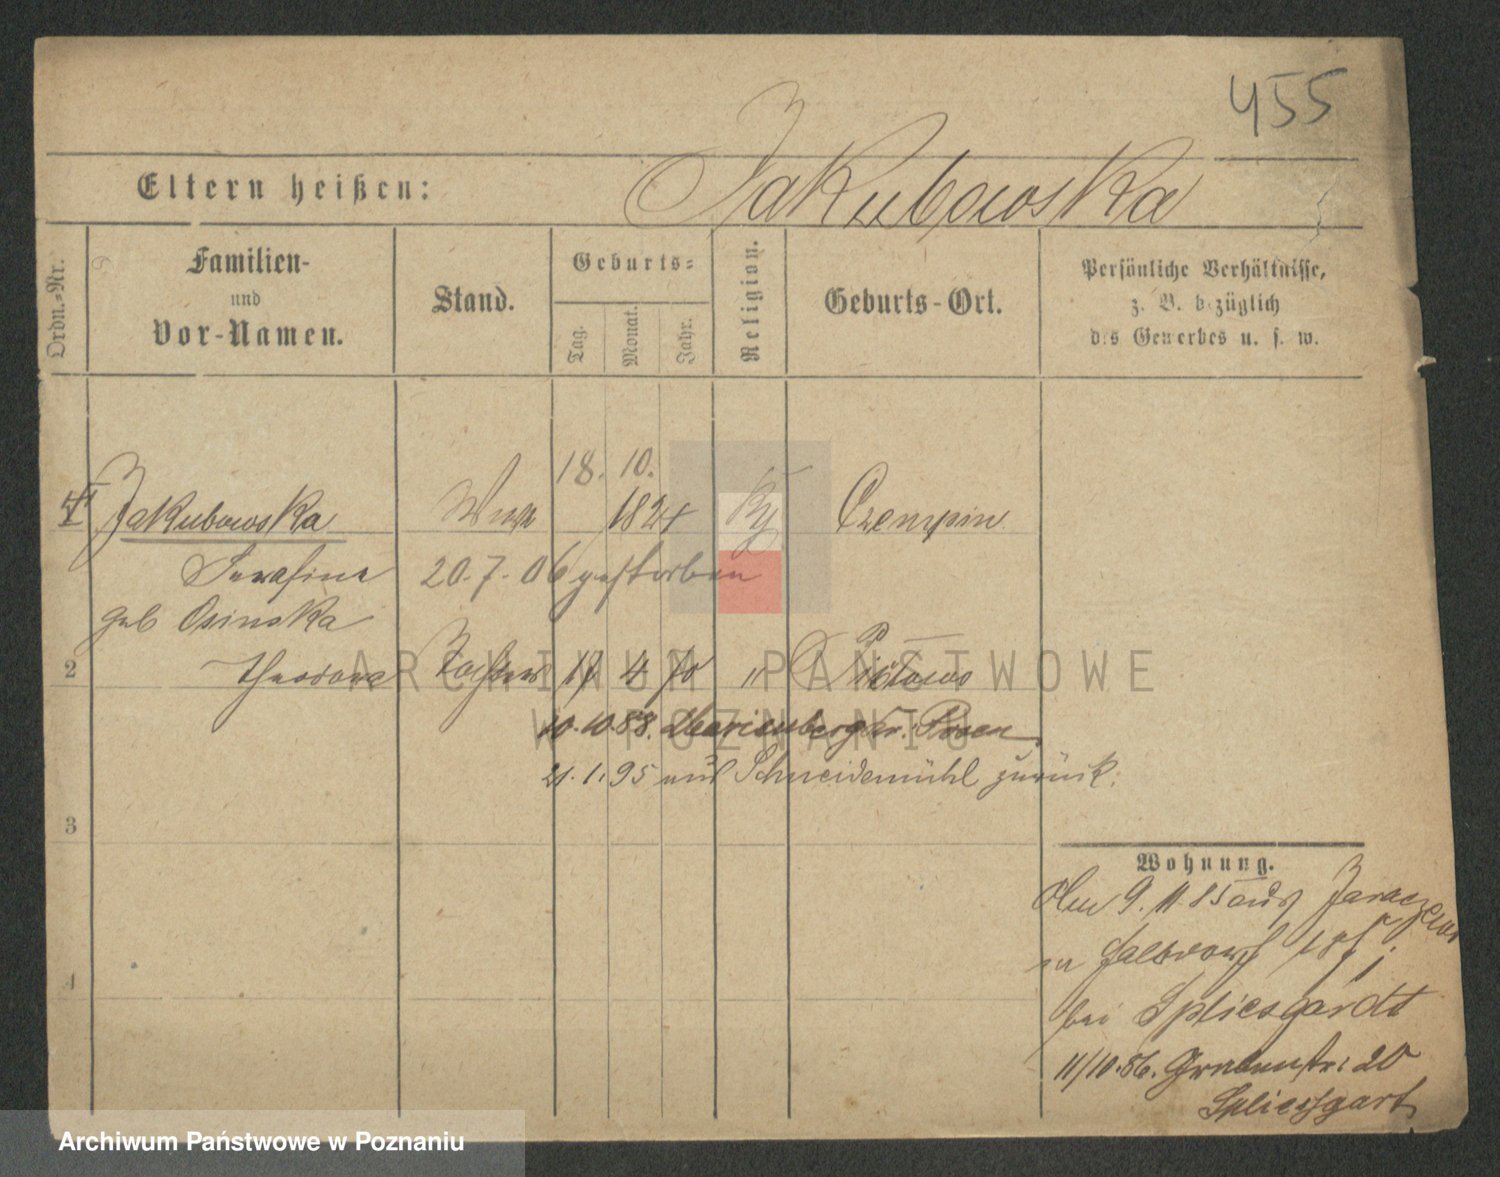 455
Eltern heißen: Jakubowska
Ordn.-Nr.
Familien-
und
Vor-Namen.
Stand.
Geburts-
Tag.
Monat.
Jahr.
Religion.
Geburts-Ort.
Persönliche Verhältnisse,
z. B. bezüglich
des Gewerbes u. s. w.
18. 10.
Jakubowska 1824 Czempin
Serafine 20.7.06 gestorben
geb Osinska
2 Theodora Tochter 17 4 70 "
10.10.88. Marienberg Kr. Posen
21.1.95 aus Schneidemühl zurück.
3
Wohnung.
Den 9.11.85 aus Jaraczewo
in
bei Spliesgardt
11/10.86. Grabenstr. 20
Spliesgart
4
ARCHIWUM PAŃSTWOWE
W POZNANIU
Archiwum Państwowe w Poznaniu